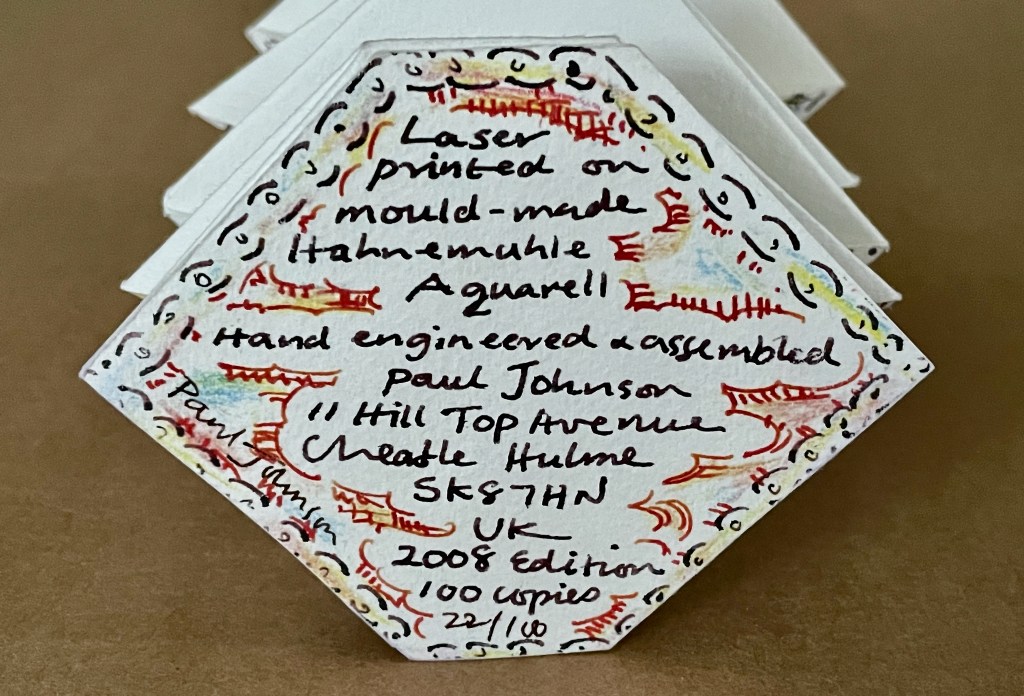 Laser
printed on
mould-made
Hahnemuhle
Aquarell
Hand engineered & assembled
Paul Johnson
11 Hill Top Avenue
Cheadle Hulme
SK8 7HN
UK
2008 Edition
100 copies
22/100
Paul Johnson